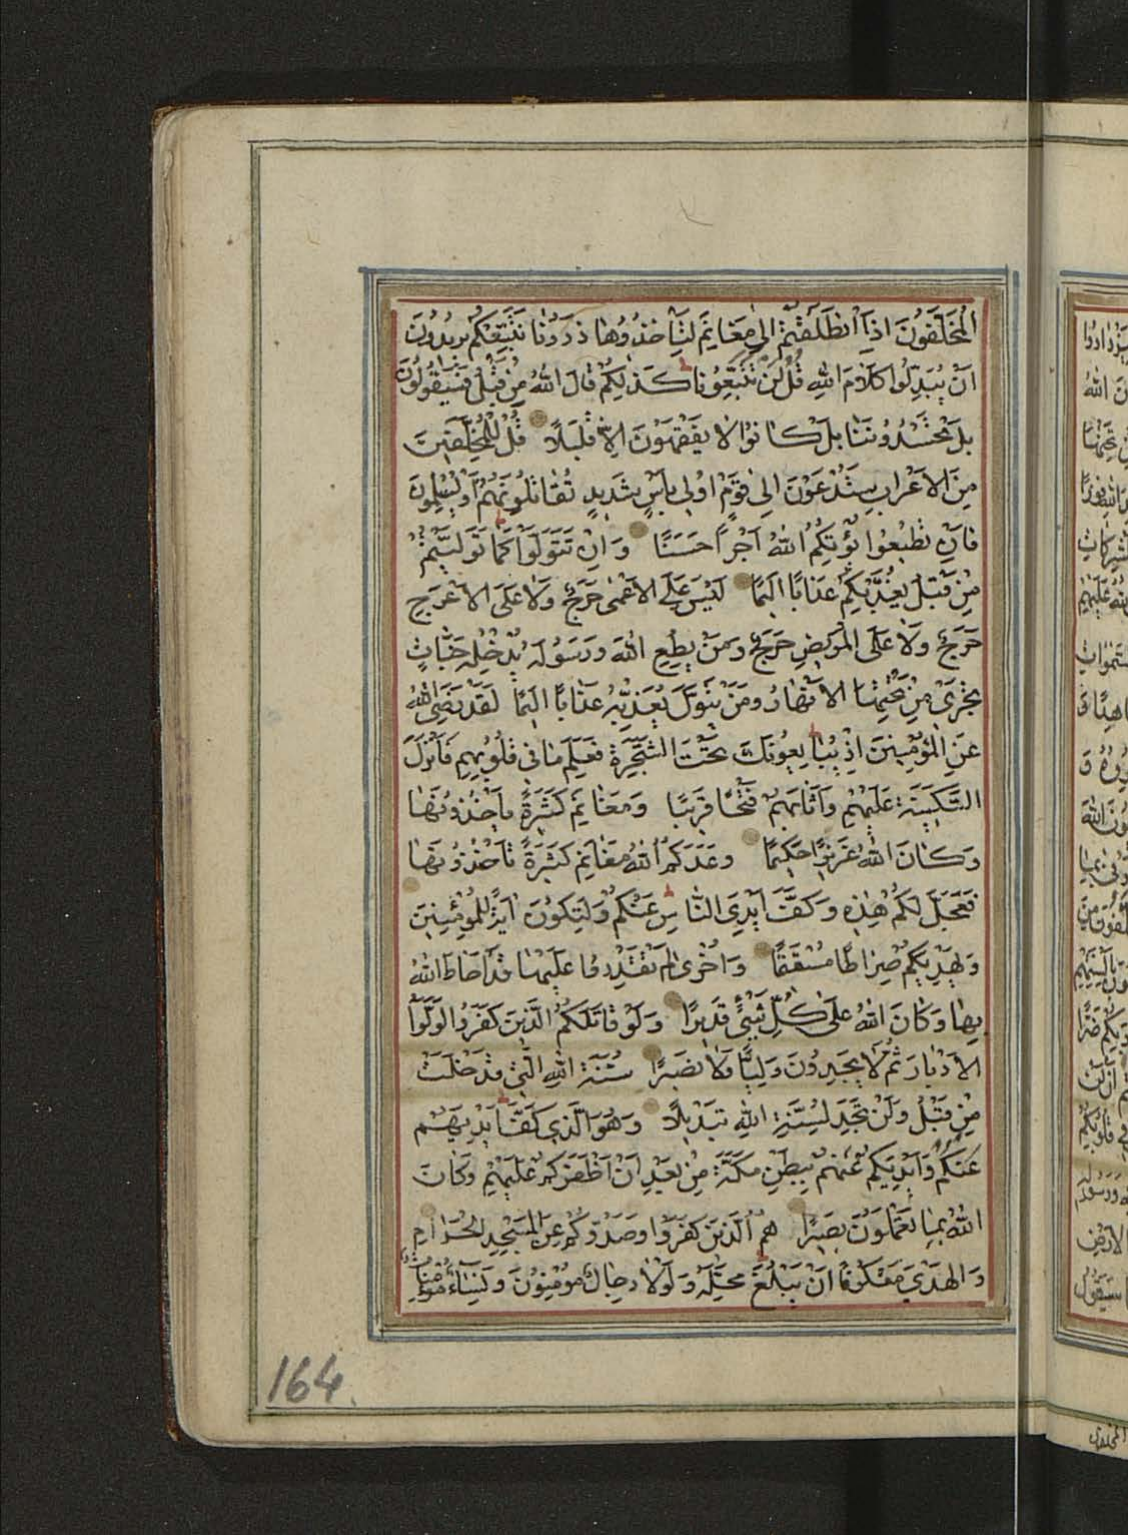 الْمُخَلَّفُونَ اِذَا انْطَلَقْتُمْ اِلٰى مَغَانِمَ لِتَأْخُذُوهَا ذَرُونَا نَتَّبِعْكُمْ يُرِيدُونَ
اَنْ يُبَدِّلُوا كَلَامَ اللّٰهِ قُلْ لَنْ تَتَّبِعُونَا كَذٰلِكُمْ قَالَ اللّٰهُ مِنْ قَبْلُ فَسَيَقُولُونَ
بَلْ تَحْسُدُونَنَا بَلْ كَانُوا لَا يَفْقَهُونَ اِلَّا قَلِيلًا قُلْ لِلْمُخَلَّفِينَ
مِنَ الْاَعْرَابِ سَتُدْعَوْنَ اِلٰى قَوْمٍ اُولِى بَأْسٍ شَدِيدٍ تُقَاتِلُونَهُمْ اَوْ يُسْلِمُونَ
فَاِنْ تُطِيعُوا يُؤْتِكُمُ اللّٰهُ اَجْرًا حَسَنًا وَاِنْ تَتَوَلَّوْا كَمَا تَوَلَّيْتُمْ
مِنْ قَبْلُ يُعَذِّبْكُمْ عَذَابًا اَلِيمًا لَيْسَ عَلَى الْاَعْمٰى حَرَجٌ وَلَا عَلَى الْاَعْرَجِ
حَرَجٌ وَلَا عَلَى الْمَرِيضِ حَرَجٌ وَمَنْ يُطِعِ اللّٰهَ وَرَسُولَهُ يُدْخِلْهُ جَنَّاتٍ
تَجْرِى مِنْ تَحْتِهَا الْاَنْهَارُ وَمَنْ يَتَوَلَّ يُعَذِّبْهُ عَذَابًا اَلِيمًا لَقَدْ رَضِىَ اللّٰهُ
عَنِ الْمُؤْمِنِينَ اِذْ يُبَايِعُونَكَ تَحْتَ الشَّجَرَةِ فَعَلِمَ مَا فِى قُلُوبِهِمْ فَاَنْزَلَ
السَّكِينَةَ عَلَيْهِمْ وَاَثَابَهُمْ فَتْحًا قَرِيبًا وَمَغَانِمَ كَثِيرَةً يَأْخُذُونَهَا
وَكَانَ اللّٰهُ عَزِيزًا حَكِيمًا وَعَدَكُمُ اللّٰهُ مَغَانِمَ كَثِيرَةً تَأْخُذُونَهَا
فَعَجَّلَ لَكُمْ هٰذِهِ وَكَفَّ اَيْدِىَ النَّاسِ عَنْكُمْ وَلِتَكُونَ اٰيَةً لِلْمُؤْمِنِينَ
وَيَهْدِيَكُمْ صِرَاطًا مُسْتَقِيمًا وَاُخْرٰى لَمْ تَقْدِرُوا عَلَيْهَا قَدْ اَحَاطَ اللّٰهُ
بِهَا وَكَانَ اللّٰهُ عَلٰى كُلِّ شَىْءٍ قَدِيرًا وَلَوْ قَاتَلَكُمُ الَّذِينَ كَفَرُوا لَوَلَّوُا
الْاَدْبَارَ ثُمَّ لَا يَجِدُونَ وَلِيًّا وَلَا نَصِيرًا سُنَّةَ اللّٰهِ الَّتِى قَدْ خَلَتْ
مِنْ قَبْلُ وَلَنْ تَجِدَ لِسُنَّةِ اللّٰهِ تَبْدِيلًا وَهُوَ الَّذِى كَفَّ اَيْدِيَهُمْ
عَنْكُمْ وَاَيْدِيَكُمْ عَنْهُمْ بِبَطْنِ مَكَّةَ مِنْ بَعْدِ اَنْ اَظْفَرَكُمْ عَلَيْهِمْ وَكَانَ
اللّٰهُ بِمَا تَعْمَلُونَ بَصِيرًا هُمُ الَّذِينَ كَفَرُوا وَصَدُّوكُمْ عَنِ الْمَسْجِدِ الْحَرَامِ
وَالْهَدْىَ مَعْكُوفًا اَنْ يَبْلُغَ مَحِلَّهُ وَلَوْلَا رِجَالٌ مُؤْمِنُونَ وَنِسَاءٌ مُؤْمِنَاتٌ
164